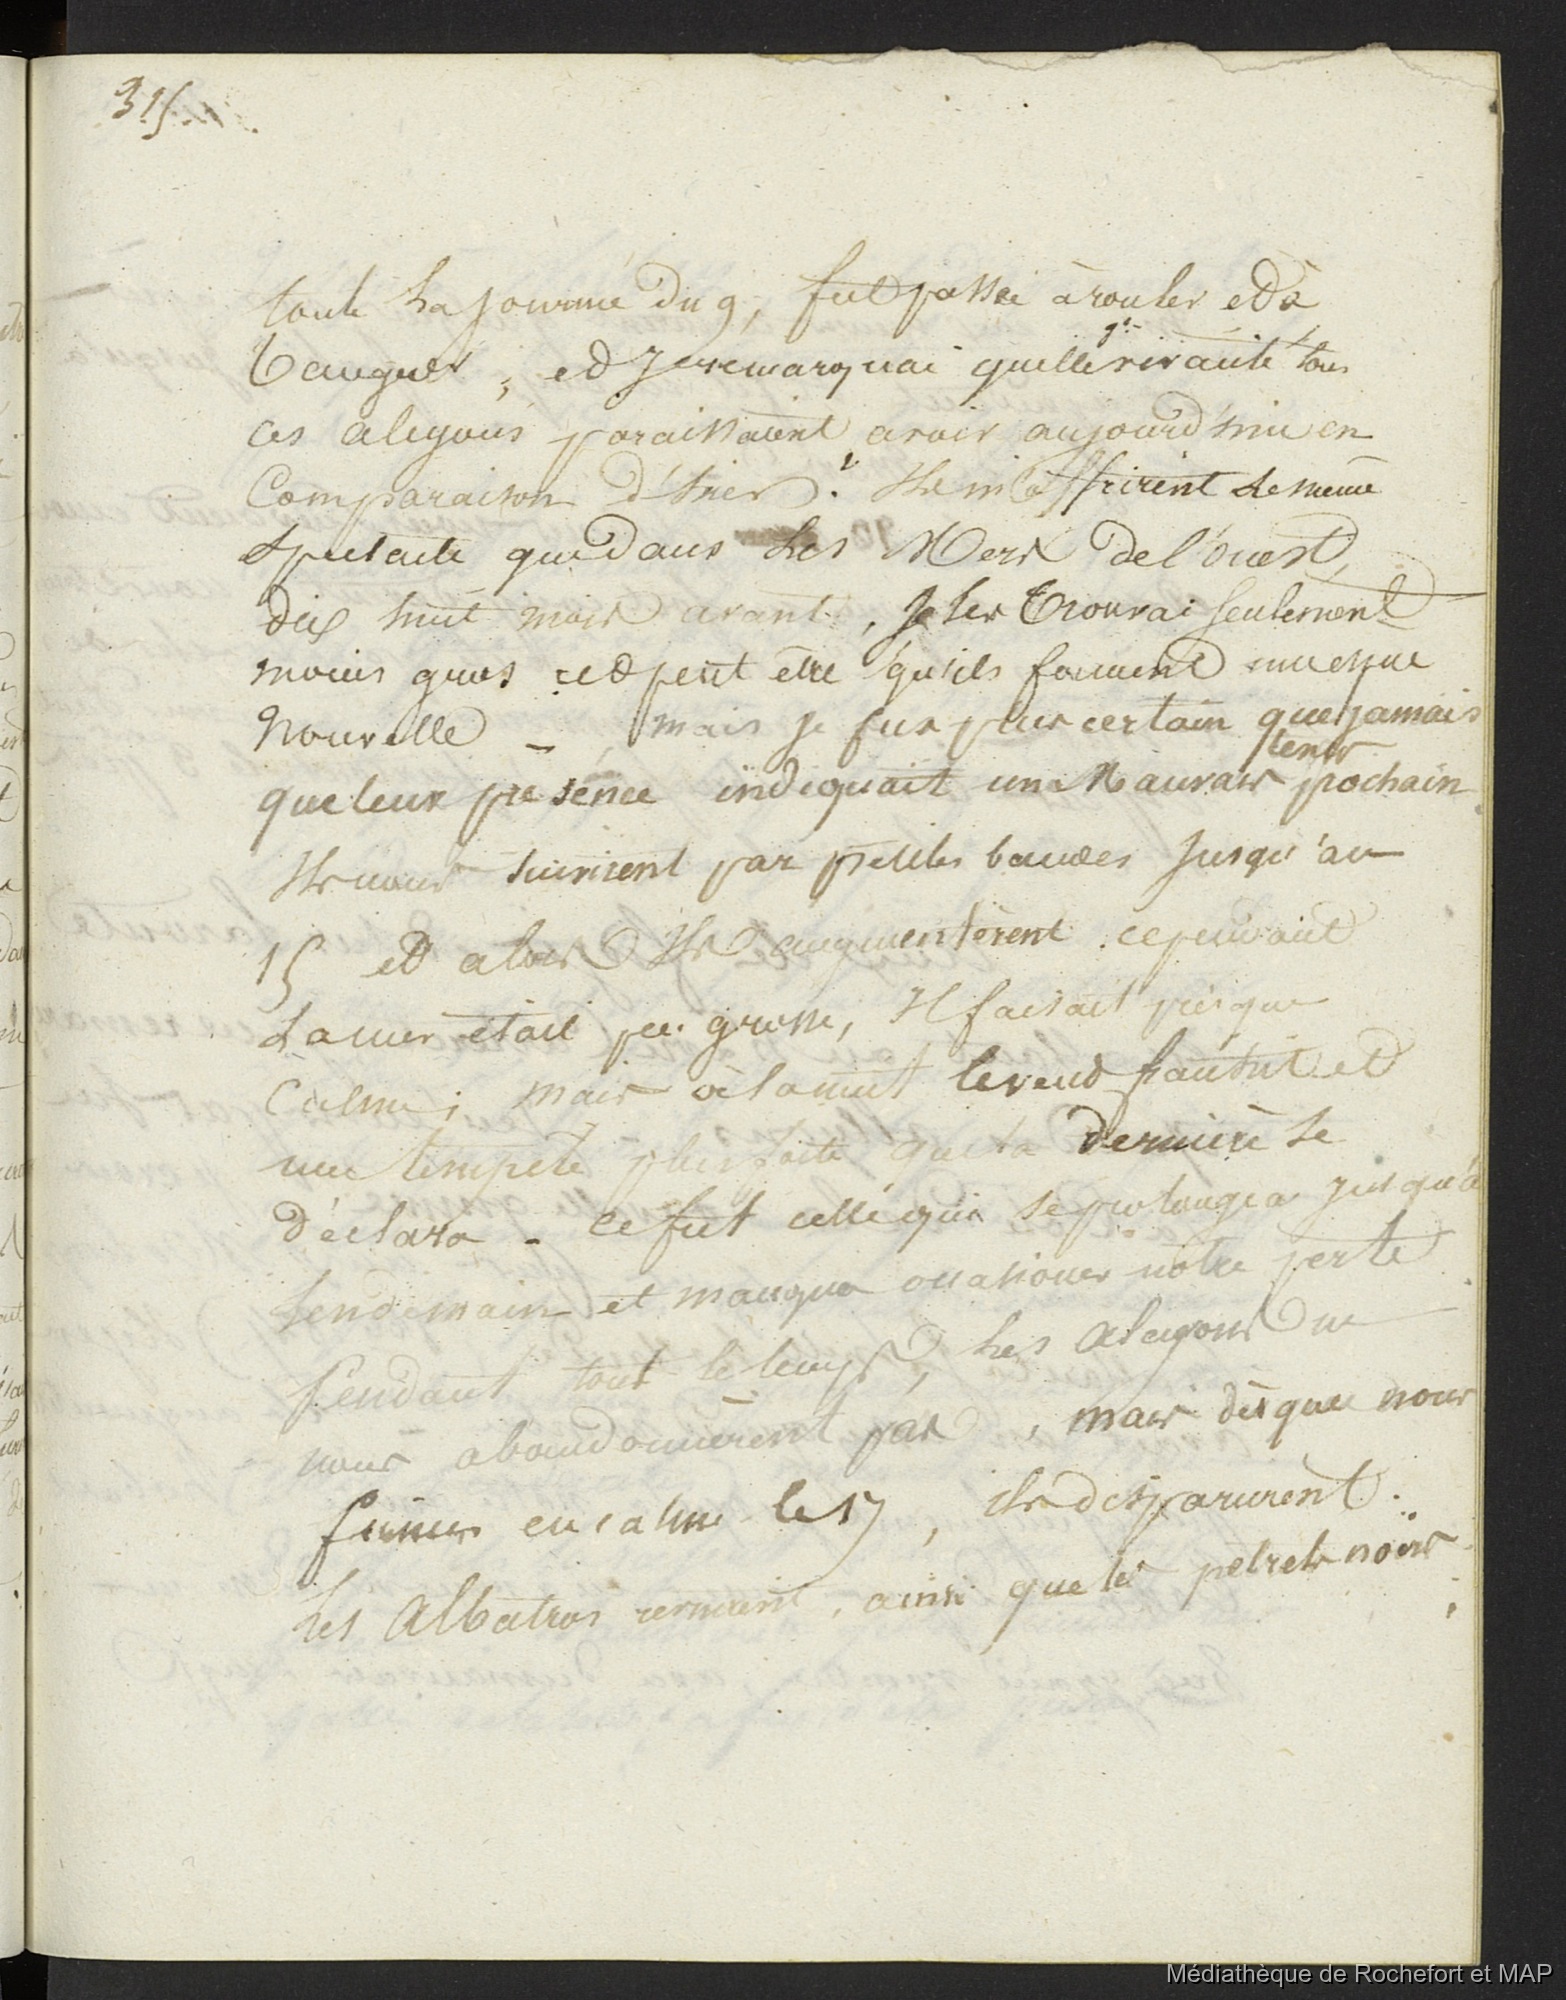 315
toute la journée du 9, fut passée à rouler et à
tanguer, et je remarquai quelle gde vivacité tous
ces alcyons paraissaient avoir aujourd'hui en
comparaison d'hier. Ils m'offrirent le même
spectacle que dans les Mers de l'ouest,
dix huit mois avant, je les trouvai seulement
moins gros et peut être qu'ils forment une espece
nouvelle - mais je fus plus certain que jamais
que leur présence indiquait un Mauvais tems prochain
Ils nous suivirent par petites bandes jusqu'au
15 et alors ils augmentèrent. cependant
la mer était peu grosse, il faisait presque
calme; mais à la nuit le vend franchit et
une tempête plus forte que la dernière se
déclara - ce fut celle qui se prolongea jusqu'à
lendemain et manqua occasioner notre perte
Pendant tout le temps, les alcyons ne
nous abandonnèrent pas, mais dès que nous
fumes en calme le 17, ils disparurent.
Les Albatros revinrent, ainsi que les petrels noirs
Médiathèque de Rochefort et MAP